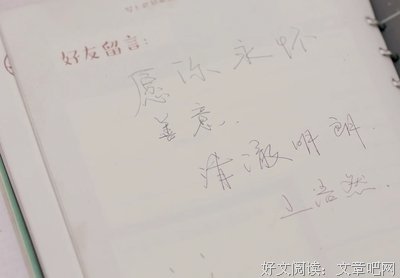 好友留言：
愿你永怀
善意.
清澈明朗.
王浩然.
好文阅读：文章吧网